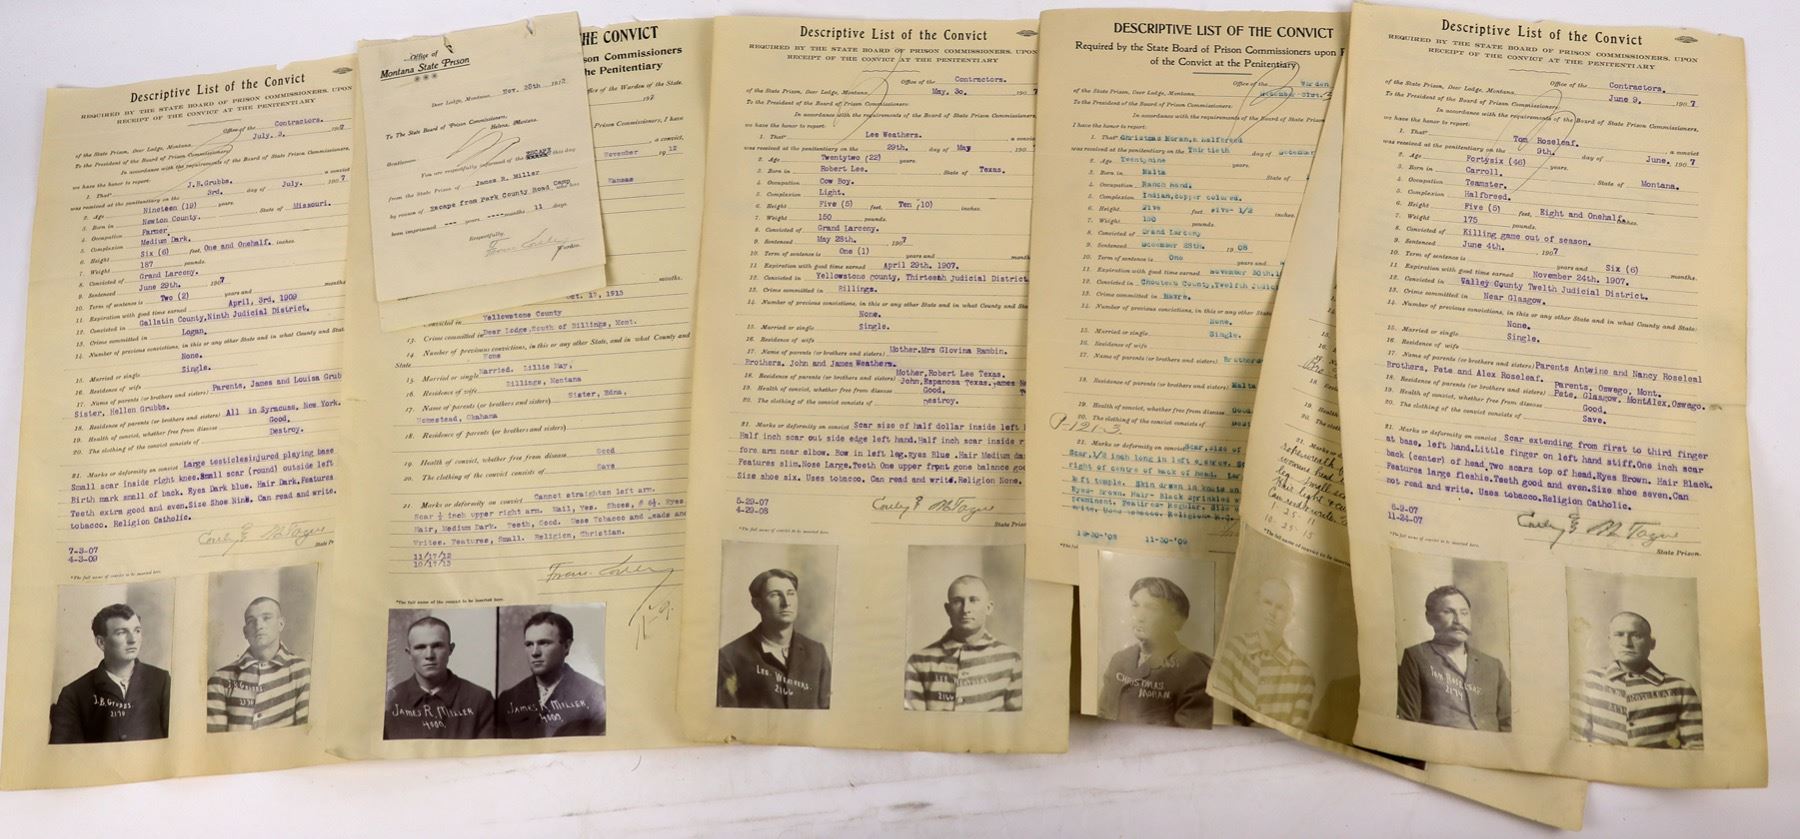 Descriptive List of the Convict
REQUIRED BY THE STATE BOARD OF PRISON COMMISSIONERS, UPON
RECEIPT OF THE CONVICT AT THE PENITENTIARY
Office of the Contractors.
of the State Prison, Deer Lodge, Montana, July. 3, 1907
To the President of the Board of Prison Commissioners:
In accordance with the requirements of the Board of State Prison Commissioners,
we have the honor to report:
1. That* J.B.Grubbs. a convict
was received at the penitentiary on the 3rd. day of July. 1907
2. Age Nineteen (19) years.
3. Born in Newton County. State of Missouri.
4. Occupation Farmer.
5. Complexion Medium Dark.
6. Height Six (6) feet, One and Onehalf. inches.
7. Weight 187 pounds.
8. Convicted of Grand Larceny.
9. Sentenced June 29th. 1907
10. Term of sentence is Two (2) years and months.
11. Expiration with good time earned April, 3rd, 1909
12. Convicted in Gallatin County,Ninth Judicial District.
13. Crime committed in Logan.
14. Number of previous convictions, in this or any other State and in what County and
None.
15. Married or single Single.
16. Residence of wife
17. Names of parents (or brothers and sisters) Parents, James and Louisa Grub
Sister, Hellen Grubbs.
18. Residence of parents (or brothers and sisters) All in Syracuse, New York.
19. Health of convict, whether free from disease Good.
20. The clothing of the convict consists of Destroy.
21. Marks or deformity on convict Large testiclesinjured playing base
Small scar inside right knee.Small scar (round) outside left
Birth mark small of back. Eyes Dark blue. Hair Dark.Features
Teeth extra good and even.Size Shoe Nine. Can read and write.
tobacco. Religion Catholic.
Conley & McTague
7-3-07
4-3-09
State Pr
*The full name of convict to be inserted here.
J.B. GRUBBS.
2179
J.B. GRUBBS
Office of
Montana State Prison
Deer Lodge, Montana, Nov. 28th 1912
To The State Board of Prison Commissioners,
Helena, Montana.
Gentlemen:
You are respectfully informed of the ESCAPE this day
from the State Prison of James R. Miller
by reason of Escape from Park County Road Camp who has
been imprisoned --- years ---- months 11 days
Respectfully,
Frank Conley
Warden.
HE CONVICT
son Commissioners
he Penitentiary
ffice of the Warden of the State.
191
Prison Commissioners, I have
a convict,
November 1912
Kansas
months.
Oct. 17, 1913
Convicted in Yellowstone County
13. Crime committed in Deer Lodge,South of Billings, Mont.
14. Number of previous convictions, in this or any other State, and in what County and
State None
15. Married or single Married. Lillie May,
16. Residence of wife Billings, Montana
17. Names of parents (or brothers and sisters) Sister, Edna,
Homestead, Okahama
18. Residence of parents (or brothers and sisters)
19. Health of convict, whether free from disease Good
20. The clothing of the convict consists of Save
21. Marks or deformity on convict Cannot straighten left arm.
Scar ½ inch upper right arm. Mail, Yes. Shoes, # 6½. Eyes
Hair, Medium Dark. Teeth, Good. Uses Tobacco and Reads and
Writes. Features, Small. Religion, Christian.
11/17/12
10/17/13
Frank Conley
*The full name of the convict to be inserted here.
JAMES R. MILLER
4000.
JAMES R. MILLER.
4000.
Descriptive List of the Convict
REQUIRED BY THE STATE BOARD OF PRISON COMMISSIONERS, UPON
RECEIPT OF THE CONVICT AT THE PENITENTIARY
Office of the Contractors.
of the State Prison, Deer Lodge, Montana, May. 30, 1907
To the President of the Board of Prison Commissioners:
In accordance with the requirements of the Board of State Prison Commissioners,
we have the honor to report:
1. That* Lee Weathers. a convict
was received at the penitentiary on the 29th. day of May 190
2. Age Twentytwo (22) years.
3. Born in Robert Lee. State of Texas.
4. Occupation Cow Boy.
5. Complexion Light.
6. Height Five (5) feet Ten (10) inches.
7. Weight 150 pounds.
8. Convicted of Grand Larceny.
9. Sentenced May 28th. 1907
10. Term of sentence is One (1) years and months.
11. Expiration with good time earned April 29th. 1907.
12. Convicted in Yellowstone county, Thirteenth Judicial District
13. Crime committed in Billings.
14. Number of previous convictions, in this or any other State and in what County and State
None.
15. Married or single Single.
16. Residence of wife
17. Names of parents (or brothers and sisters) Mother,Mrs Glovina Rambin.
Brothers, John and James Weathers.
18. Residence of parents (or brothers and sisters) Mother,Robert Lee Texas.
John,Espanosa Texas.James
19. Health of convict, whether free from disease Good.
20. The clothing of the convict consists of Destroy.
21. Marks or deformity on convict Scar size of half dollar inside left
Half inch scar out side edge left hand.Half inch scar inside r
fore arm near elbow. Bow in left leg.Eyes Blue .Hair Medium da
Features slim.Nose Large.Teeth One upper front gone balance go
Size shoe six. Uses tobacco. Can read and write.Religion None.
5-29-07
4-29-08
Conley & McTague
State Prison
*The full name of convict to be inserted here.
LEE WEATHERS.
2166
LEE WEATHERS
2166
DESCRIPTIVE LIST OF THE CONVICT
Required by the State Board of Prison Commissioners upon
of the Convict at the Penitentiary
Office of the Warden
of the State Prison, Deer Lodge, Montana, December 31st.
To the President of the Board of Prison Commissioners:
In accordance with the requirements of the Board of State Prison
I have the honor to report:
1. That Christmas Moran,a Halfbreed
was received at the penitentiary on the Thirtieth day of December
2. Age Twentynine
3. Born in Malta
4. Occupation Ranch hand.
5. Complexion Indian,copper colored.
6. Height Five feet five- 1/2 inches.
7. Weight 190 pounds.
8. Convicted of Grand Larceny
9. Sentenced December 28th. 1908
10. Term of sentence is One years and
11. Expiration with good time earned November 30th.
12. Convicted in Chouteau County,Twelfth Judic
13. Crime committed in Havre.
14. Number of previous convictions, in this or any other State
None.
15. Married or single Single.
16. Residence of wife
17. Names of parents (or brothers and sisters) Brothers
18. Residence of parents (or brothers and sisters) Malta
19. Health of convict, whether free from disease Good.
20. The clothing of the convict consists of
P-121-3.
21. Marks or deformity on convict Scar,size of
Scar,1/2 inch long in left
right of centre of back of head.
left temple. Skin drawn in knots on
Eyes- Brown. Hair- Black Sprinkled w
prominent. Features- Regular. Size o
write. Uses tobacco. Religion- R.C.
12-30-'08 11-30-'09
CHRISTMAS
MORAN
1-25-11
10-25-15
Descriptive List of the Convict
REQUIRED BY THE STATE BOARD OF PRISON COMMISSIONERS, UPON
RECEIPT OF THE CONVICT AT THE PENITENTIARY
Office of the Contractors.
of the State Prison, Deer Lodge, Montana, June 9, 1907
To the President of the Board of Prison Commissioners:
In accordance with the requirements of the Board of State Prison Commissioners,
we have the honor to report:
1. That* Tom Roseleaf. a convict
was received at the penitentiary on the 9th. day of June. 1907
2. Age Fortysix (46) years.
3. Born in Carroll. State of Montana.
4. Occupation Teamster.
5. Complexion Halfbreed.
6. Height Five (5) feet, Eight and Onehalf. inches.
7. Weight 175 pounds.
8. Convicted of Killing game out of season.
9. Sentenced June 4th. 1907
10. Term of sentence is years and Six (6) months.
11. Expiration with good time earned November 24th. 1907.
12. Convicted in Valley County Twelth Judicial District.
13. Crime committed in Near Glasgow.
14. Number of previous convictions, in this or any other State and in what County and State:
None.
15. Married or single Single.
16. Residence of wife
17. Names of parents (or brothers and sisters) Parents Antwine and Nancy Roseleaf
Brothers, Pete and Alex Roseleaf.
18. Residence of parents (or brothers and sisters) Parents, Oswago, Mont.
Pete, Glasgow, MontAlex,Oswago.
19. Health of convict, whether free from disease Good.
20. The clothing of the convict consists of Save.
21. Marks or deformity on convict Scar extending from first to third finger
at base, left hand.Little finger on left hand stiff.One inch scar
back (center) of head,Two scars top of head.Eyes Brown. Hair Black.
Features large fleshie.Teeth good and even.Size shoe seven.Can
not read and write. Uses tobacco.Religion Catholic.
6-9-07
11-24-07
Conley & McTague
State Prison.
*The full name of convict to be inserted here.
TOM ROSELEAF
2174
TOM ROSELEAF